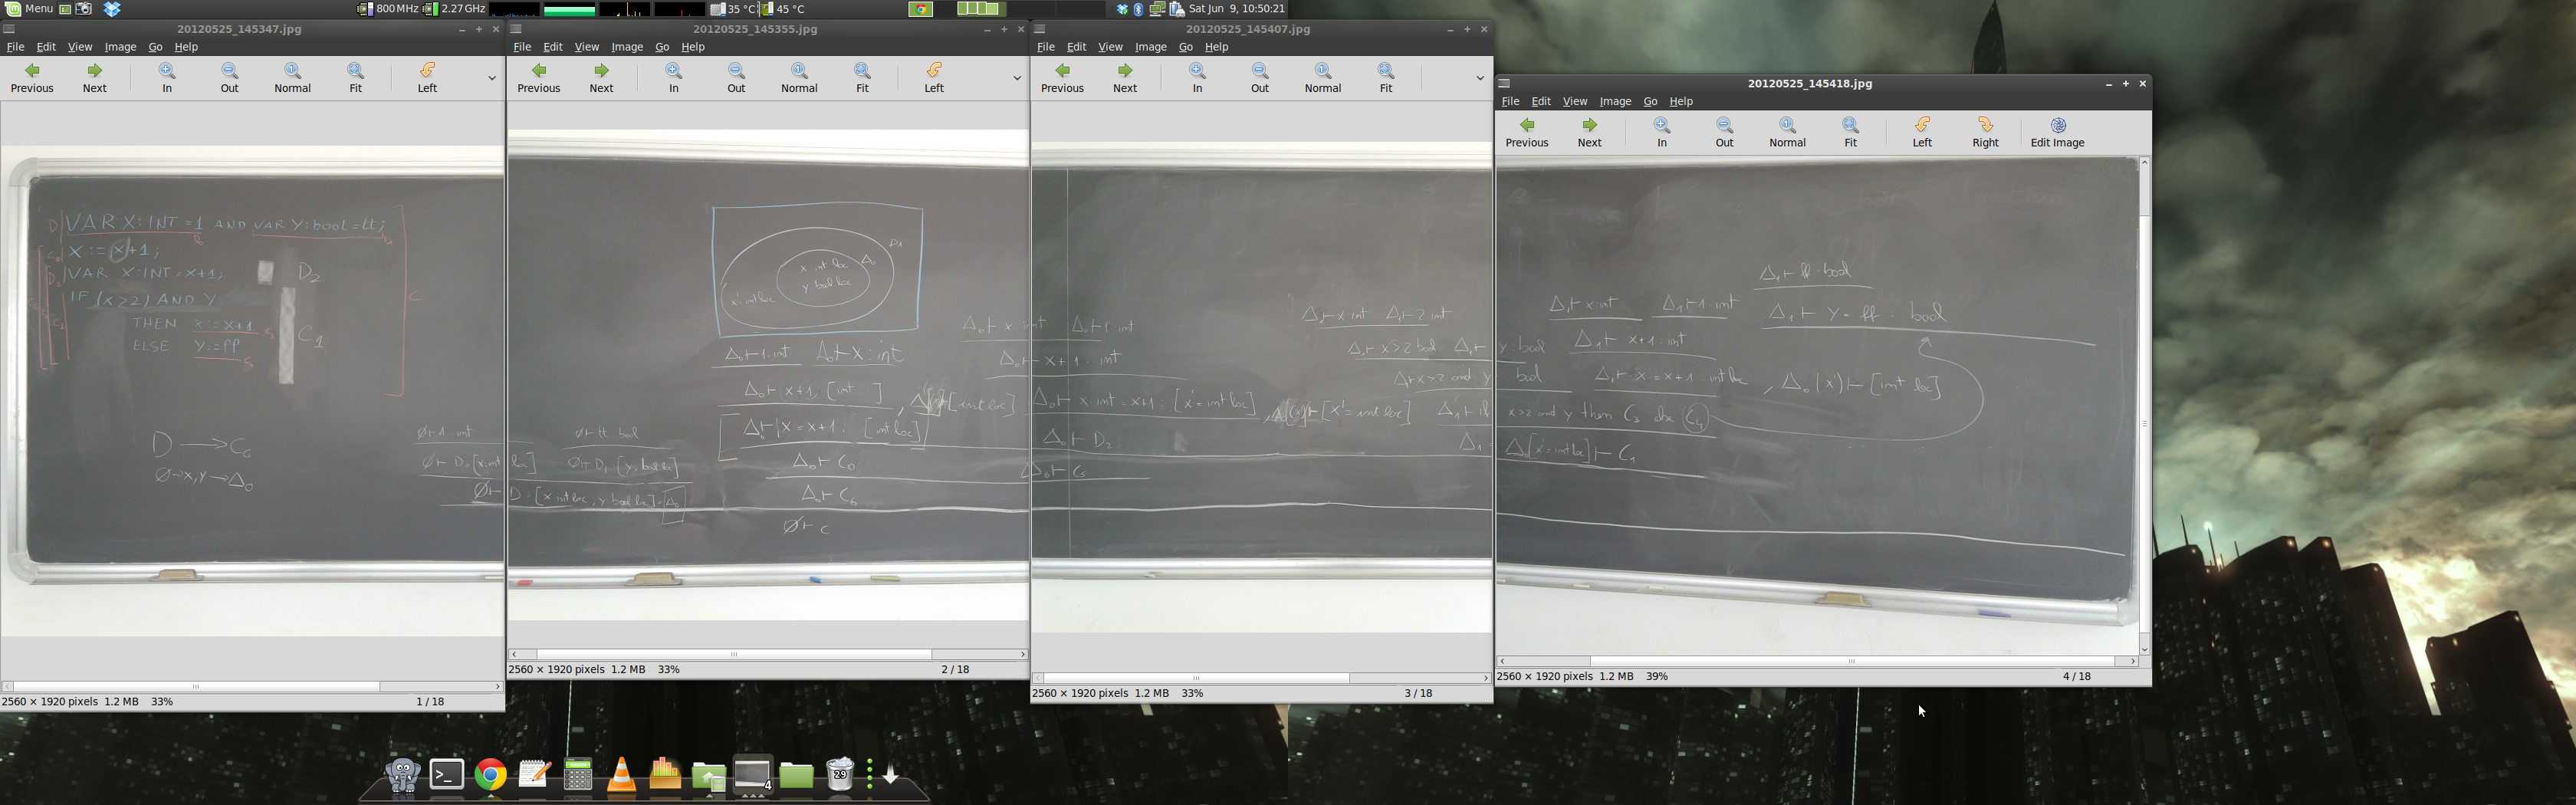 Menu
800 MHz 2.27 GHz 35 °C 45 °C
Sat Jun 9, 10:50:21
20120525_145347.jpg
File Edit View Image Go Help
Previous Next In Out Normal Fit Left
D VAR X:INT = 1 AND VAR Y:bool = tt;
X := X+1;
VAR X:INT = X+1; D2
IF (X≥2) AND Y
THEN X := X+1
C1
ELSE Y := ff
C
D → C6
∅ → x,y → Δ0
∅ ⊢ 1 int
2560 × 1920 pixels 1.2 MB 33% 1 / 18
20120525_145355.jpg
File Edit View Image Go Help
Previous Next In Out Normal Fit Left
x int loc Δ0
y bool loc
x' int loc
Δ0 ⊢ 1 int Δ0 ⊢ X : int
Δ0 ⊢ x+1 : [int ]
Δ0 ⊢ X = x+1 : [int loc]
∅ ⊢ tt bool
∅ ⊢ D0 [x:int loc] ∅ ⊢ D1 [y:bool loc]
Δ0 ⊢ C0
∅ ⊢ D = [x int loc, y bool loc] = Δ0
Δ0 ⊢ C6
∅ ⊢ C
2560 × 1920 pixels 1.2 MB 33% 2 / 18
20120525_145407.jpg
File Edit View Image Go Help
Previous Next In Out Normal Fit
Δ0 ⊢ x int Δ0 ⊢ 1 int
Δ0 ⊢ x+1 int
Δ1 ⊢ x int Δ1 ⊢ 2 int
Δ1 ⊢ x>2 bool Δ1 ⊢ y:bool
Δ1 ⊢ x>2 and y bool
Δ0 ⊢ x int = x+1 : [x' = int loc], [x' = int loc]
Δ0 ⊢ D2
Δ0 ⊢ C5
2560 × 1920 pixels 1.2 MB 33% 3 / 18
20120525_145418.jpg
File Edit View Image Go Help
Previous Next In Out Normal Fit Left Right Edit Image
Δ1 ⊢ ff bool
Δ1 ⊢ x int Δ1 ⊢ 1 int Δ1 ⊢ Y = ff : bool
Δ1 ⊢ x+1 int
Δ1 ⊢ x = x+1 int loc, Δ0(x') ⊢ [int loc]
x>2 and y then C3 else C4
Δ0[x' = int loc] ⊢ C1
2560 × 1920 pixels 1.2 MB 39% 4 / 18
29
4